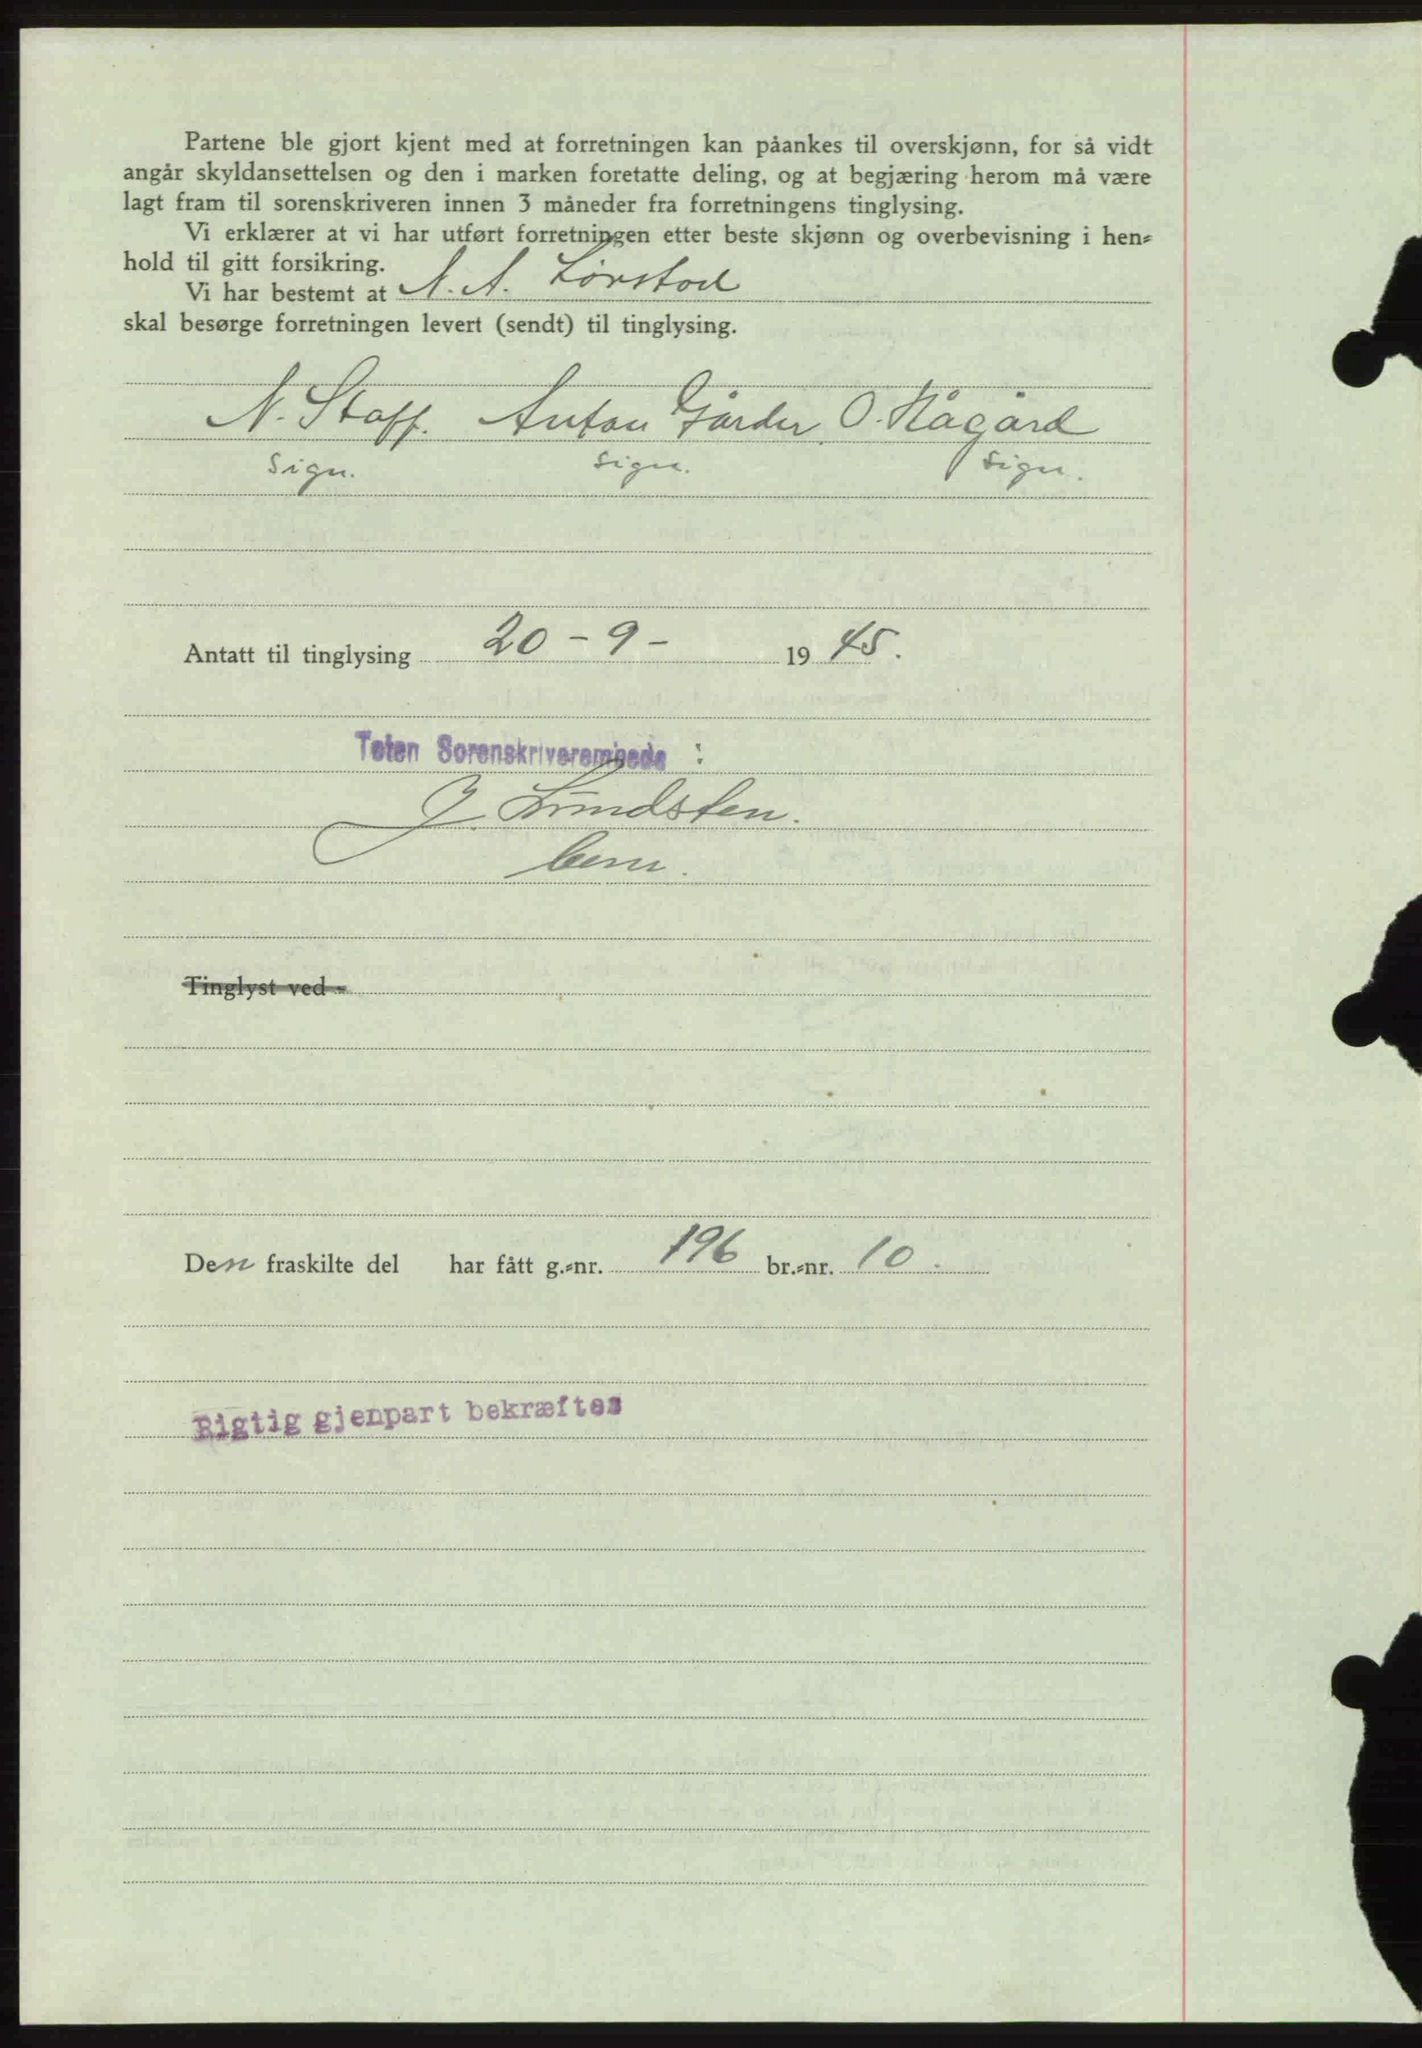 Partene ble gjort kjent med at forretningen kan påankes til overskjønn, for så vidt
angår skyldansettelsen og den i marken foretatte deling, og at begjæring herom må være
lagt fram til sorenskriveren innen 3 måneder fra forretningens tinglysing.
Vi erklærer at vi har utført forretningen etter beste skjønn og overbevisning i hen-
hold til gitt forsikring.
Vi har bestemt at N. A. Lørstad
skal besørge forretningen levert (sendt) til tinglysing.
N. Staff. Anton Gårder, O. Hågård
sign. sign. sign.
Antatt til tinglysing 20 - 9 - 19 45.
Toten Sorenskriverembede :
J. Lundsten.
bem.
Tinglyst ved -
Den fraskilte del har fått g.-nr. 196 br.-nr. 10.
Rigtig gjenpart bekræftes